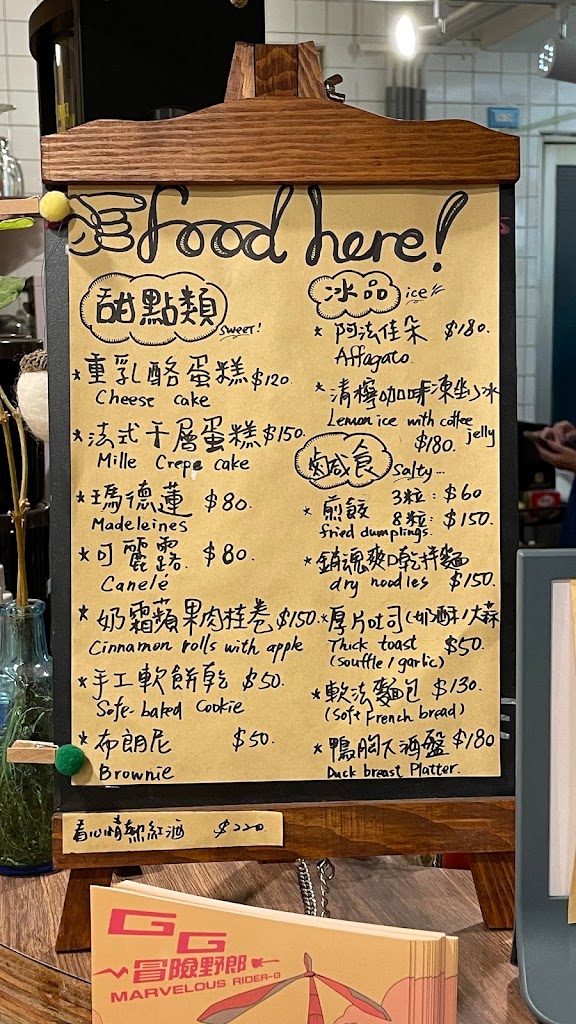 food here!
甜點類 sweet!
* 重乳酪蛋糕 $120.
Cheese cake
* 法式千層蛋糕 $150.
Mille Crepe cake
* 瑪德蓮 $80.
Madeleines
* 可麗露 $80.
Canelé
* 奶霜蘋果肉桂卷 $150.
Cinnamon rolls with apple
* 手工軟餅乾 $50.
Sofe-baked Cookie
* 布朗尼 $50.
Brownie
冰品 ice
* 阿法佳朵 $180.
Affagato
* 清檸咖啡凍坐冰
Lemon ice with coffee jelly
$180.
鹵咸食 Salty...
* 煎餃 3粒: $60
8粒: $150.
fried dumplings.
* 銷魂爽口乾拌麵
dry noodles $150.
* 厚片吐司(奶酥/大蒜
Thick toast $50.
(souffle/garlic)
* 軟法麵包 $130.
(soft French bread)
* 鴨胸大酒盤 $180
Duck breast Platter.
看心情熱紅酒 $220
GG
冒險野郎
MARVELOUS RIDER-G